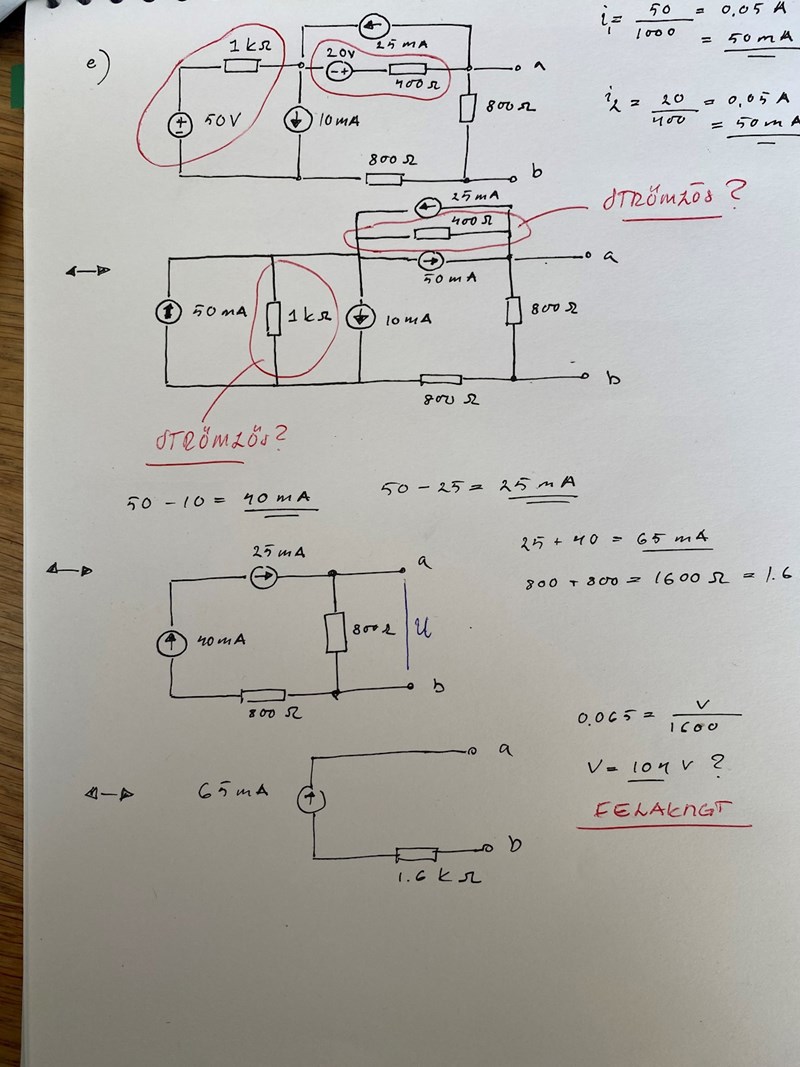 e)
1 kΩ
25 mA
20V
- +
400 Ω
a
± 50V
10mA
800 Ω
800 Ω
b
i₁ = 50/1000 = 0,05 A
= 50 mA
i₂ = 20/400 = 0,05 A
= 50 mA
25 mA
400 Ω
STRÖMLÖS?
50 mA
a
50 mA
1 kΩ
10 mA
800 Ω
800 Ω
b
STRÖMLÖS?
50 - 10 = 40 mA
50 - 25 = 25 mA
25 + 40 = 65 mA
800 + 800 = 1600 Ω = 1.6
25 mA
a
40 mA
800 Ω
U
800 Ω
b
0.065 = V/1600
V = 104 V ?
FELAKTIGT
65 mA
a
b
1.6 kΩ